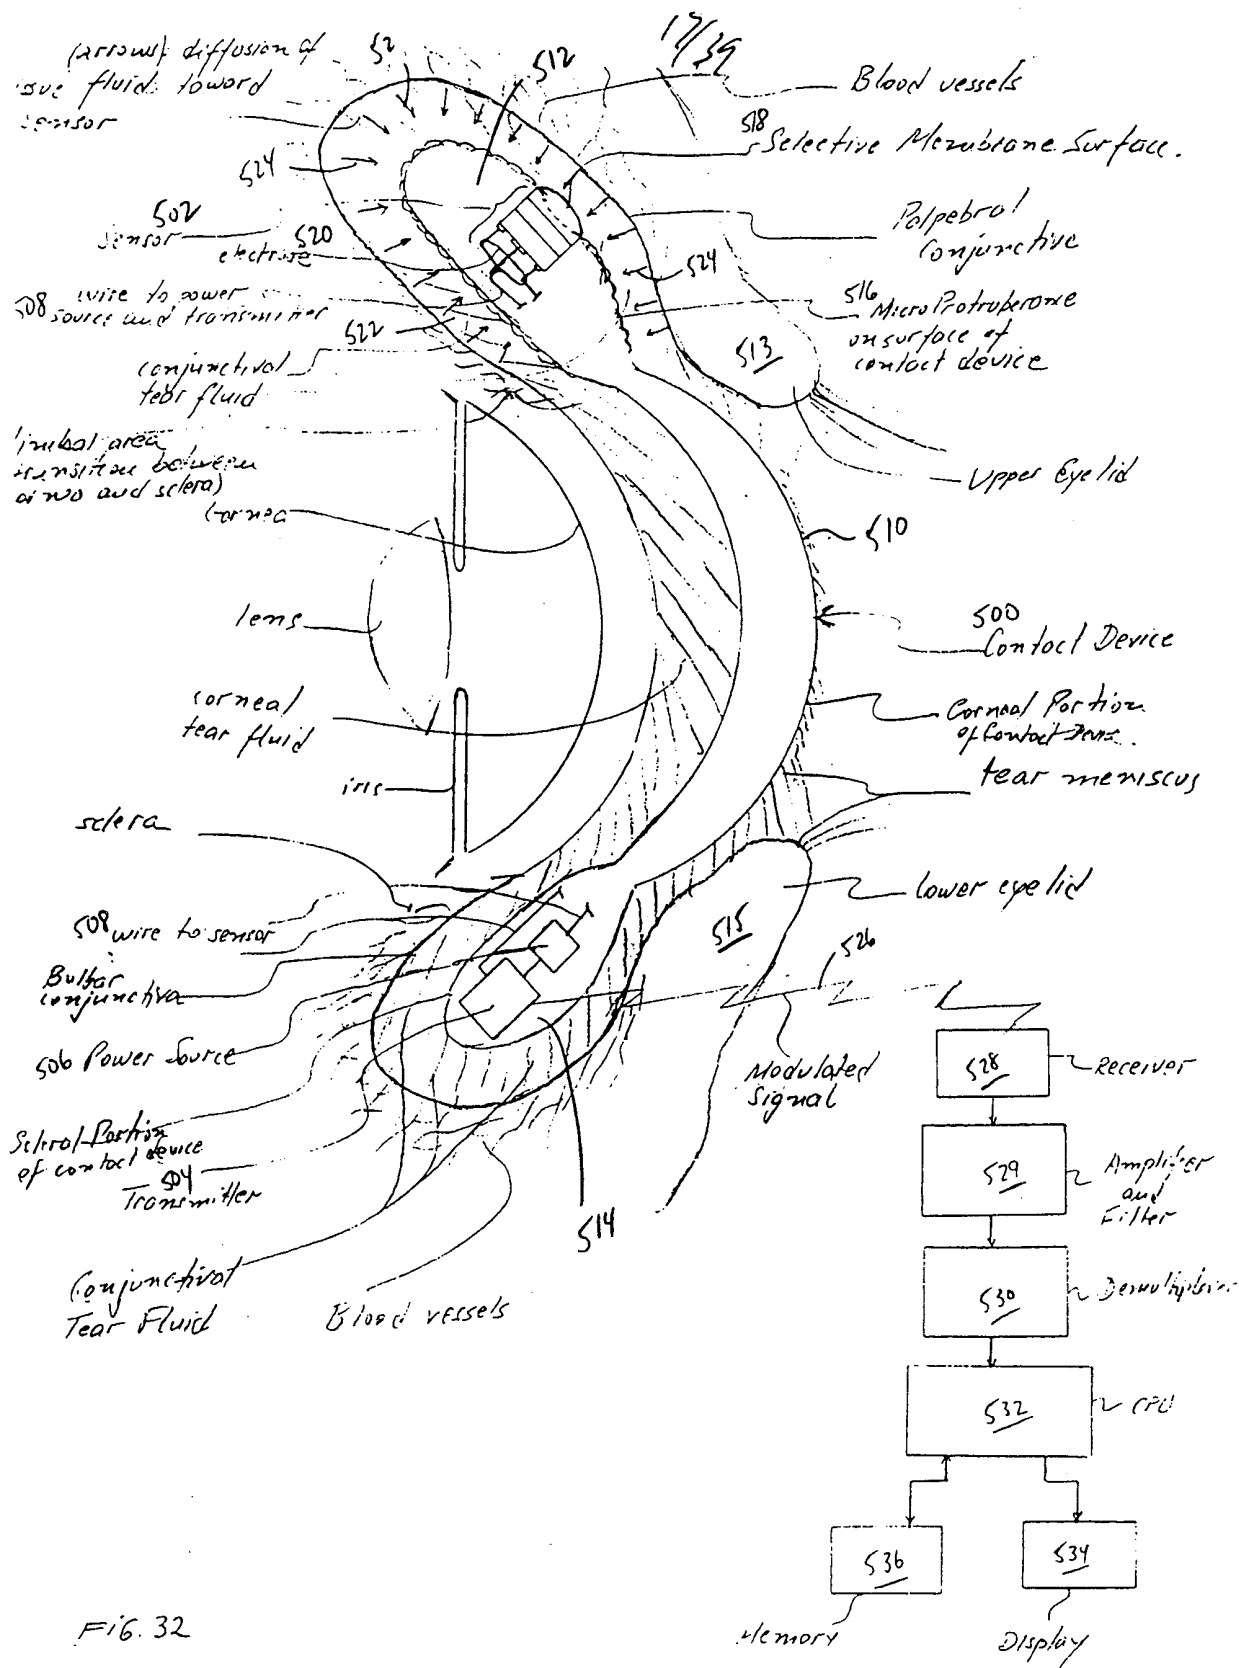 17/39
(arrows) diffusion of
fluid toward
sensor
52
512
Blood vessels
518
Selective Membrane Surface.
524
502
sensor
520
electrode
Palpebral
Conjunctive
524
508 wire to power
source and transmitter
522
516
Micro Protruberane
on surface of
contact device
513
conjunctival
tear fluid
area
transition between
and sclera)
Cornea
Upper Eyelid
510
lens
500
Contact Device
corneal
tear fluid
Corneal Portion
of Contact
iris
tear meniscus
sclera
Lower eyelid
515
526
508 wire to sensor
Bulbar
conjunctiva
506 Power Source
Modulated
Signal
528
Receiver
Scleral Portion
of contact device
504
Transmitter
529
Amplifier
and
Filter
514
Conjunctival
Tear Fluid
Blood vessels
530
532
CPU
536
534
Memory
Display
FIG. 32